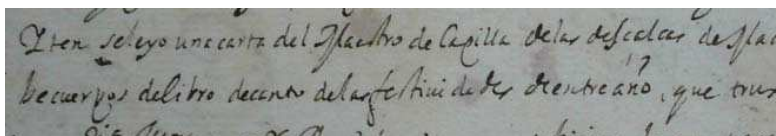 Yten seleyo una carta del Maestro de Capilla delas descalças de Mad
be cuerpos delibro decanto delas festiuidades dentreaño, que trux